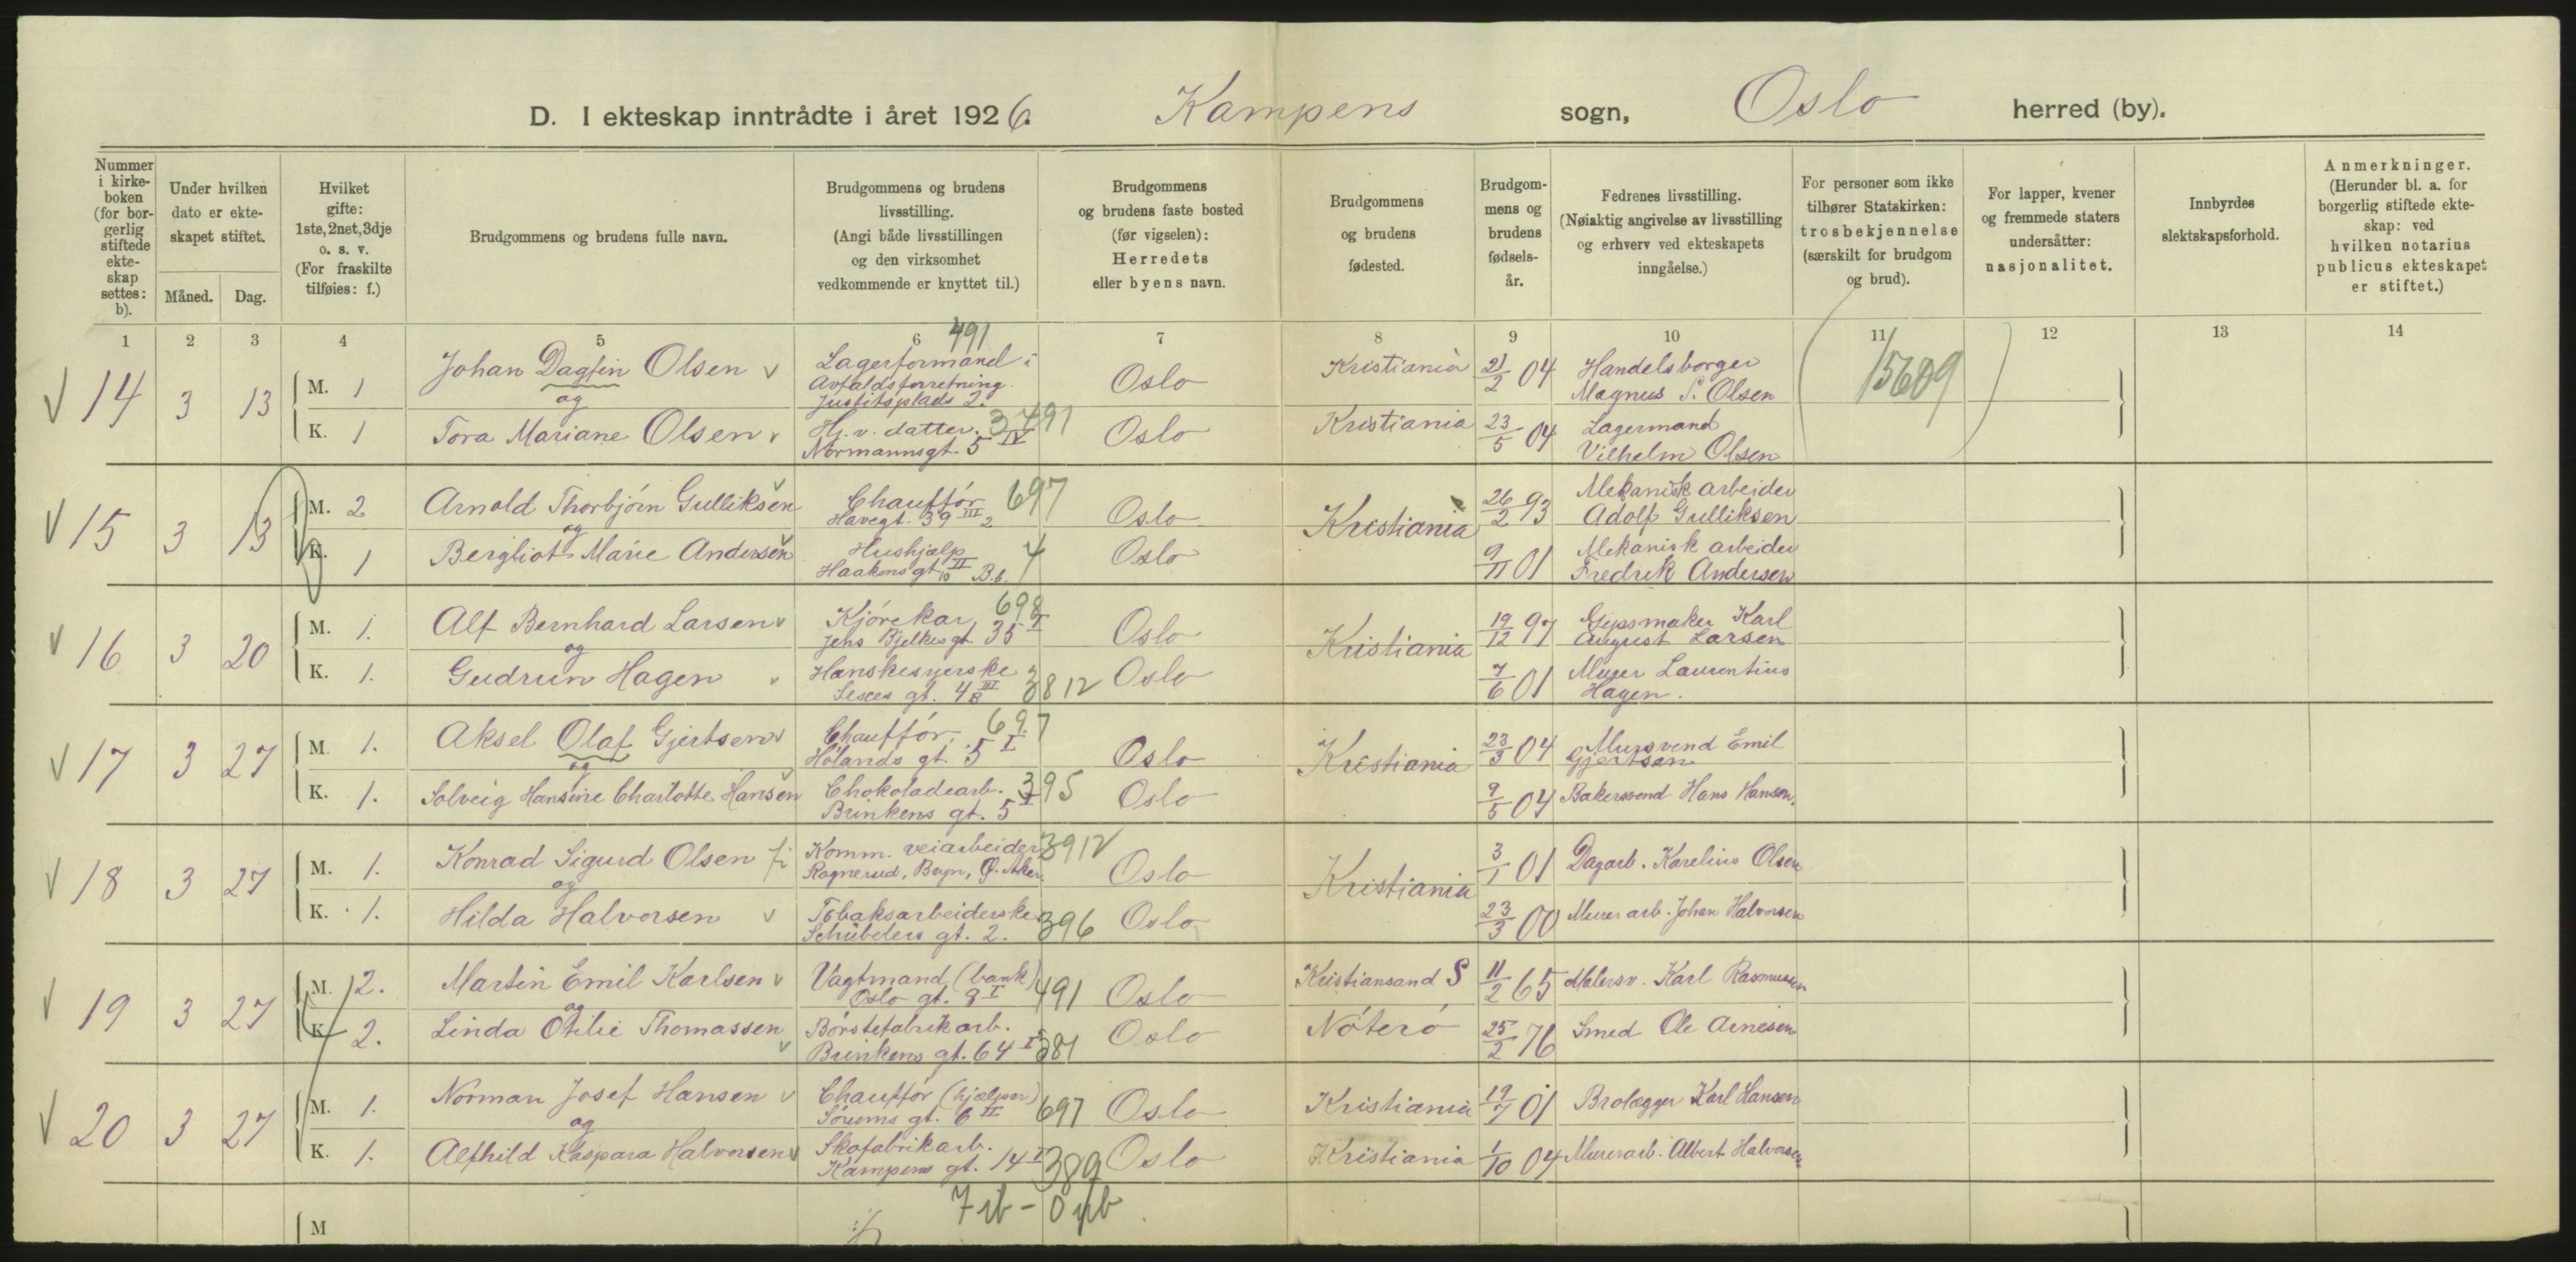 D. I ekteskap inntrådte i året 1926. Kampens sogn, Oslo herred (by).
Nummer i kirke- boken (for bor- gerlig stiftede ekte- skap settes: b).
Under hvilken dato er ekte- skapet stiftet.
Måned. Dag.
Hvilket gifte: 1ste, 2net, 3dje o. s. v. (For fraskilte tilføies: f.)
Brudgommens og brudens fulle navn.
Brudgommens og brudens livsstilling. (Angi både livsstillingen og den virksomhet vedkommende er knyttet til.)
Brudgommens og brudens faste bosted (før vigselen): Herredets eller byens navn.
Brudgommens og brudens fødested.
Brudgom- mens og brudens fødsels- år.
Fedrenes livsstilling. (Nøiaktig angivelse av livsstilling og erhverv ved ekteskapets inngåelse.)
For personer som ikke tilhører Statskirken: trosbekjennelse (særskilt for brudgom og brud).
For lapper, kvener og fremmede staters undersåtter: nasjonalitet.
Innbyrdes slektskapsforhold.
Anmerkninger. (Herunder bl. a. for borgerlig stiftede ekte- skap: ved hvilken notarius publicus ekteskapet er stiftet.)
1 2 3 4 5 6 7 8 9 10 11 12 13 14
491
14 3 13 M. 1 Johan Dagfin Olsen Lagerformand i Oslo Kristiania 21/2 04 Handelsborger
Avfaldsforretning. Magnus S. Olsen 15609
og Justitsplads 2.
K. 1 Tora Mariane Olsen Hj. v. datter. 3491 Oslo Kristiania 23/5 04 Lagermand
Normannsgt. 5 IV Vilhelm Olsen
15 3 13 M. 2 Arnold Thorbjørn Gulliksen Chauffør 697 Oslo Kristiania 26/2 93 Mekanisk arbeider
Havegt. 39 III 2 Adolf Gulliksen
og
K. 1 Bergliot Marie Andersen Hushjælp 4 Oslo 9/11 01 Mekanisk arbeider
Haakons gt. 10 II B.b. Fredrik Andersen
16 3 20 M. 1. Alf Bernhard Larsen Kjørekar 698 Oslo Kristiania 19/12 97 Gipsmaker Karl
Jens Bjelkes gt. 35 I August Larsen
og
K. 1. Gudrun Hagen Hanskesyerske 3812 Oslo 7/6 01 Murer Laurentius
gt. 48 III Hagen.
17 3 27 M. 1. Aksel Olaf Gjertsen Chauffør. 697 Oslo Kristiania 23/3 04 Mursvend Emil
Hølands gt. 5 I Gjertsen
og
K. 1. Solveig Hansine Charlotte Hansen Chokoladearb. 395 Oslo 9/5 04 Bakersvend Hans Hansen.
Brinkens gt. 5 I
18 3 27 M. 1. Konrad Sigurd Olsen fi Komm. veiarbeider 3912 Oslo Kristiania 3/1 01 Dagarb. Karelius Olsen
Ragnerud, Bryn, Ø. Aker.
og
K. 1. Hilda Halvorsen Tobaksarbeiderske 396 Oslo 23/3 00 Murerarb. Johan Halvorsen
Schübelers gt. 2.
19 3 27 M. 2. Martin Emil Karlsen Vagtmand (bank) 491 Oslo Kristiansand S 11/2 65 Malersv. Karl Rasmussen
Oslo gt. 9 I
og
K. 2. Linda Otilie Thomassen Børstefabrikarb. 381 Oslo Nøterø 25/2 76 Smed Ole Arnesen
Brinkens gt. 64 I
20 3 27 M. 1. Norman Josef Hansen Chauffør (hjælper) 697 Oslo Kristiania 19/7 01 Brolægger Karl Hansen
Sørums gt. 6 II
og
K. 1. Alfhild Kaspara Halvorsen Skofabrikarb. 389 Oslo Kristiania 1/10 04 Murerarb. Albert Halvorsen
Kampens gt. 14 I
7 ib - 0 ub
M